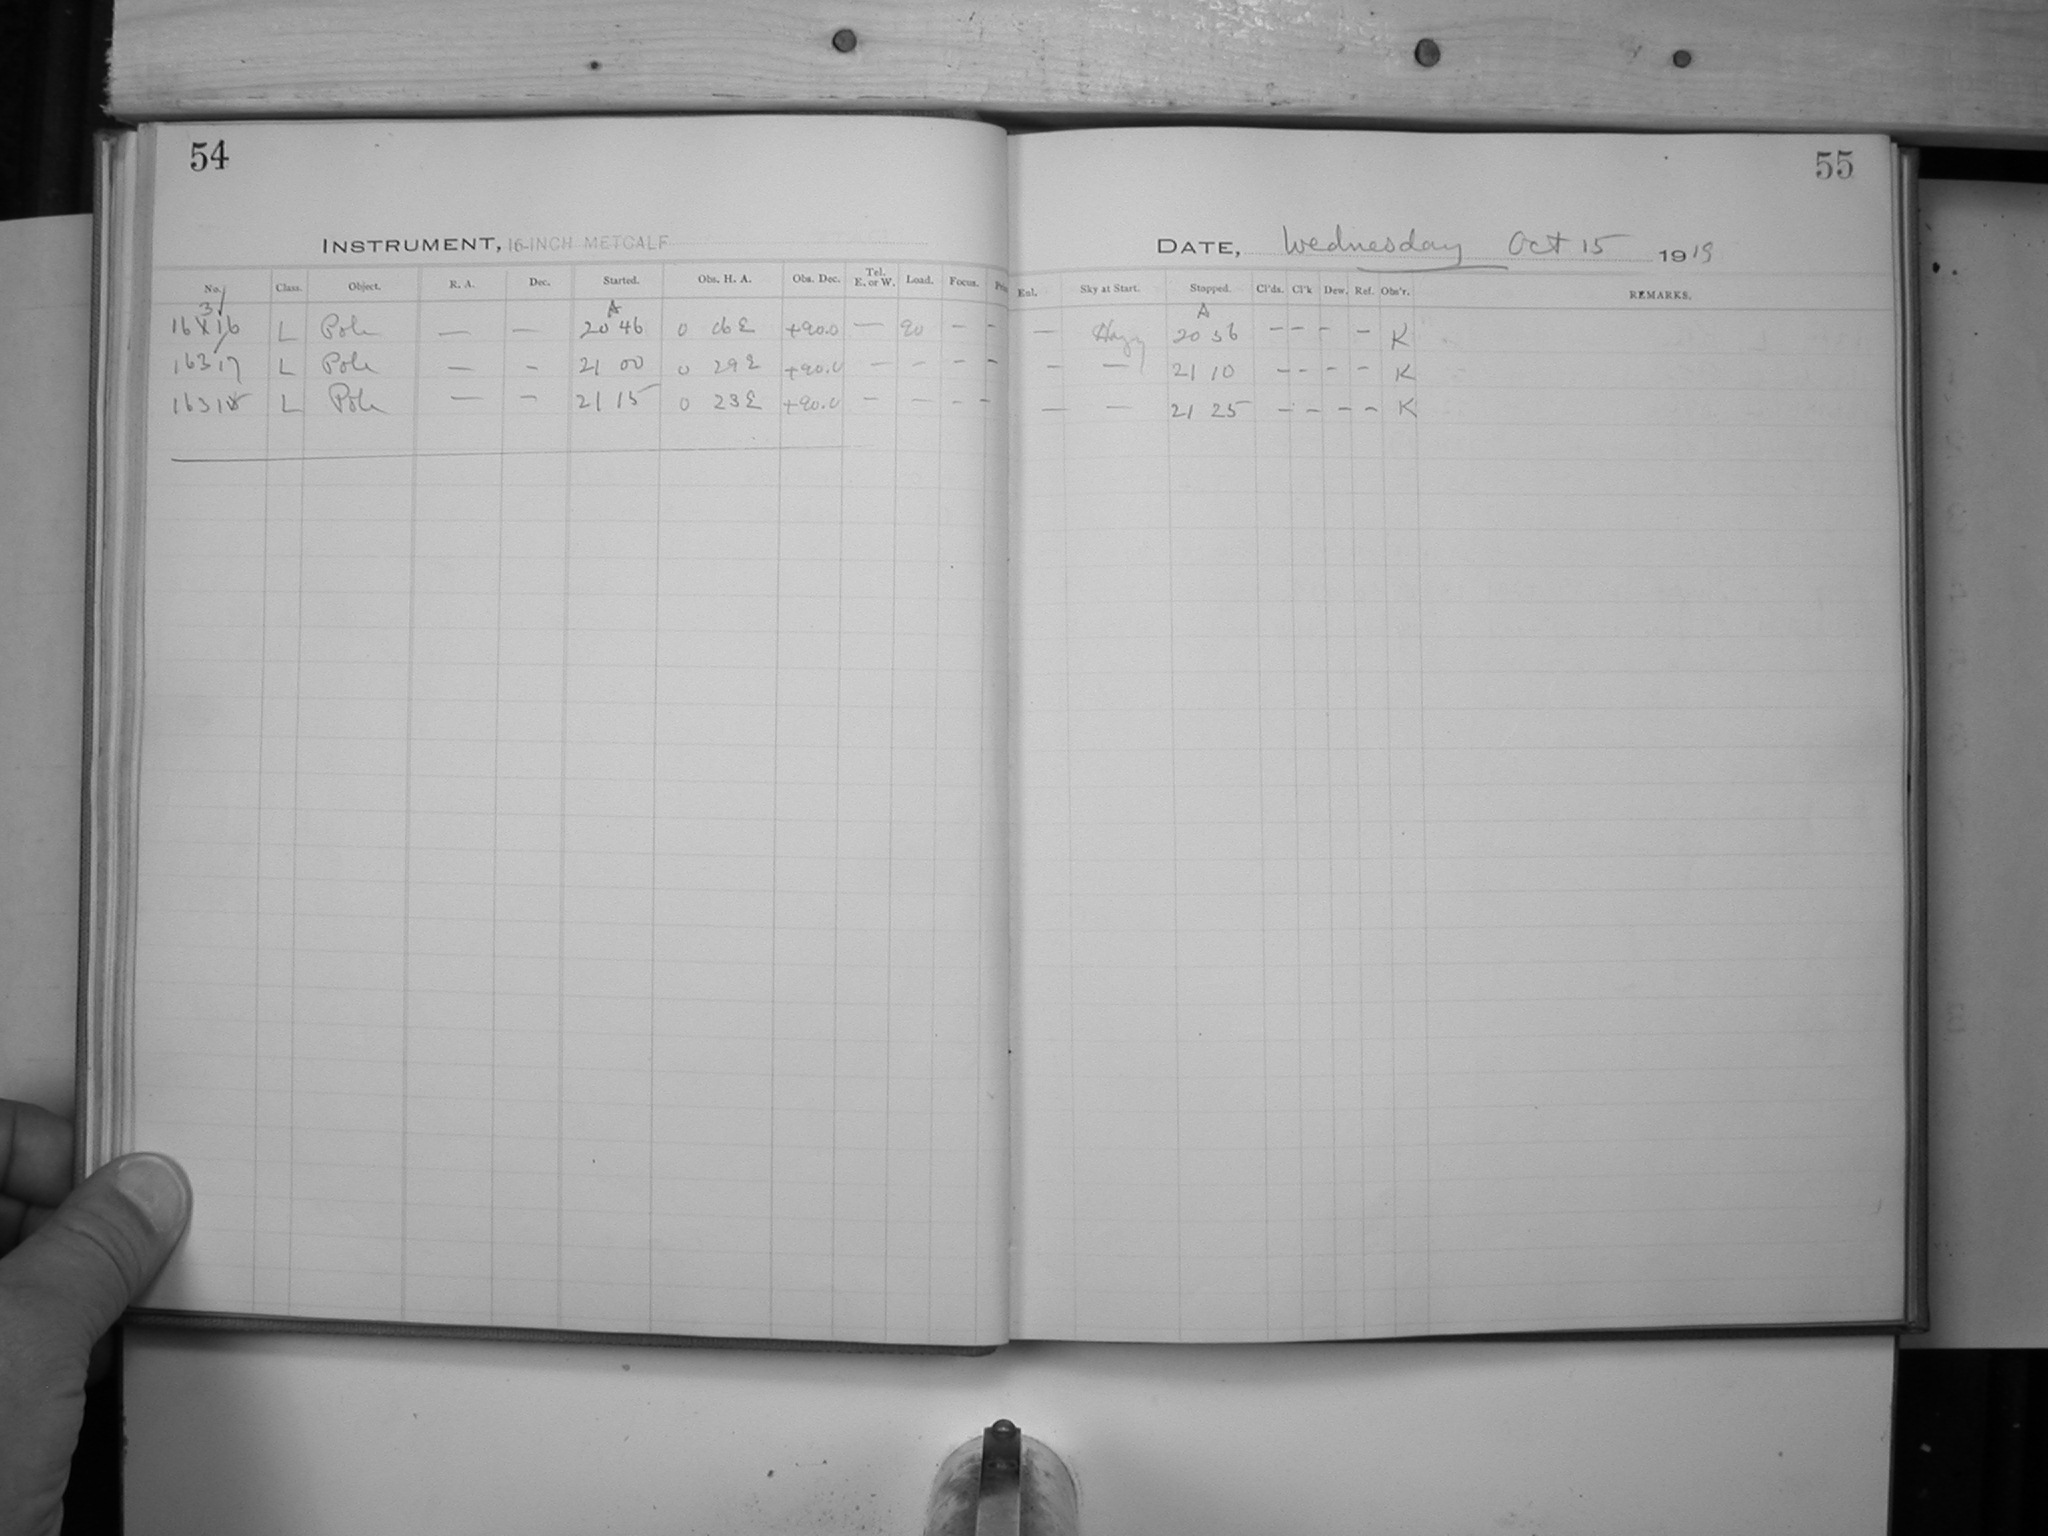 54
INSTRUMENT, 16-INCH METCALF
No. Class. Object. R. A. Dec. Started. Obs. H. A. Obs. Dec. Tel. E. or W. Load. Focus.
16316 L Pole — — A 20 46 0 06 E +90.0 — 90 - -
16317 L Pole — - 21 00 0 29 E +90.0 — - - -
16318 L Pole — - 21 15 0 23 E +90.0 - - - -
55
DATE, Wednesday Oct 15 1919
Enl. Sky at Start. Stopped. Cl'ds. Cl'k Dew. Ref. Obs'r. REMARKS.
— Hazy A 20 56 - - - - K
- — 21 10 - - - - K
— — 21 25 - - - - K